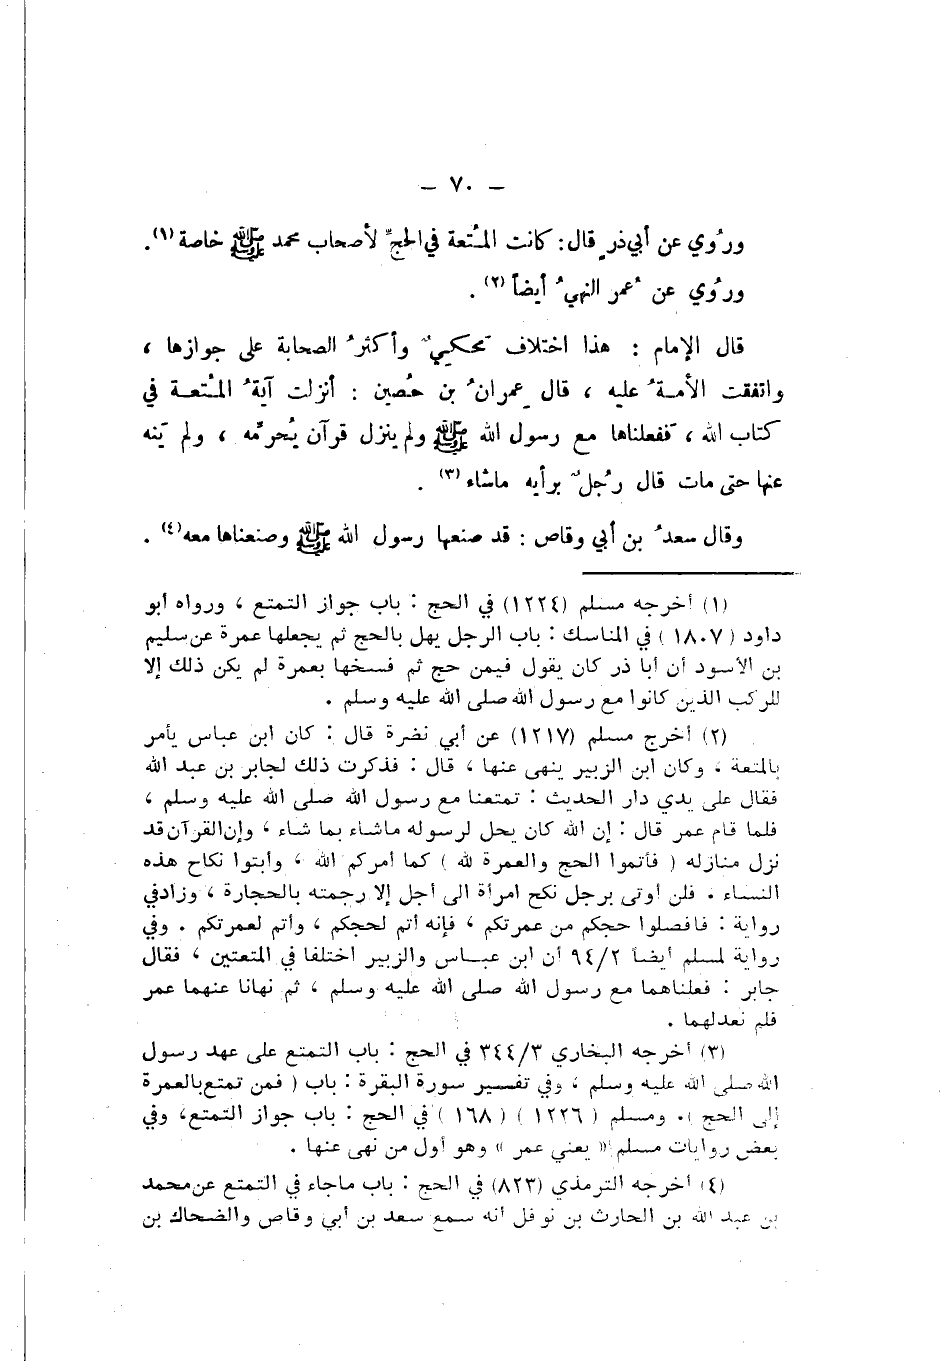 – ٧٠ –
ورُوي عن أبي ذرٍ قال: كانت المُتعة في الحجّ لأصحاب محمد ﷺ خاصة (١).
ورُوي عن عُمر النهيُ أيضاً (٢) .
قال الإمام : هذا اختلاف محكيٌ وأكثرُ الصحابة على جوازها ،
واتفقت الأمـةُ عليه ، قال عِمرانُ بن حُصين : أنزلت آيةُ المُتعـة في
كتاب الله ، ففعلناها مع رسول الله ﷺ ولم ينزل قرآن يُحرمّه ، ولم يَنه
عنها حتى مات قال رجُلٌ برأيه ماشاء (٣) .
وقال سعدُ بن أبي وقاص : قد صنعها رسول الله ﷺ وصنعناها معه (٤) .
(١) أخرجه مسلم (١٢٢٤) في الحج : باب جواز التمتع ، ورواه أبو
داود ( ١٨٠٧ ) في المناسك : باب الرجل يهل بالحج ثم يجعلها عمرة عن سليم
بن الأسود أن أبا ذر كان يقول فيمن حج ثم فسخها بعمرة لم يكن ذلك إلا
للركب الذين كانوا مع رسول الله صلى الله عليه وسلم .
(٢) أخرج مسلم (١٢١٧) عن أبي نضرة قال : كان ابن عباس يأمر
بالمتعة ، وكان ابن الزبير ينهى عنها ، قال : فذكرت ذلك لجابر بن عبد الله
فقال على يدي دار الحديث : تمتعنا مع رسول الله صلى الله عليه وسلم ،
فلما قام عمر قال : إن الله كان يحل لرسوله ماشاء بما شاء ، وإن القرآن قد
نزل منازله ( فأتموا الحج والعمرة لله ) كما أمركم الله ، وأبتوا نكاح هذه
النساء . فلن أوتى برجل نكح امرأة الى أجل إلا رجمته بالحجارة ، وزاد في
رواية : فافصلوا حجكم من عمرتكم ، فإنه أتم لحجكم ، وأتم لعمرتكم . وفي
رواية لمسلم أيضاً ٩٤/٢ أن ابن عبـاس والزبير اختلفا في المتعتين ، فقال
جابر : فعلناهما مع رسول الله صلى الله عليه وسلم ، ثم نهانا عنهما عمر
فلم نعد لهما .
(٣) أخرجه البخاري ٣٤٤/٣ في الحج : باب التمتع على عهد رسول
الله صلى الله عليه وسلم ، وفي تفسير سورة البقرة : باب ( فمن تمتع بالعمرة
إلى الحج ). ومسلم ( ١٢٢٦ ) ( ١٦٨ ) في الحج : باب جواز التمتع، وفي
بعض روايات مسلم « يعني عمر » وهو أول من نهى عنها .
(٤) أخرجه الترمذي (٨٢٣) في الحج : باب ماجاء في التمتع عن محمد
بن عبد الله بن الحارث بن نوفل أنه سمع سعد بن أبي وقاص والضحاك بن